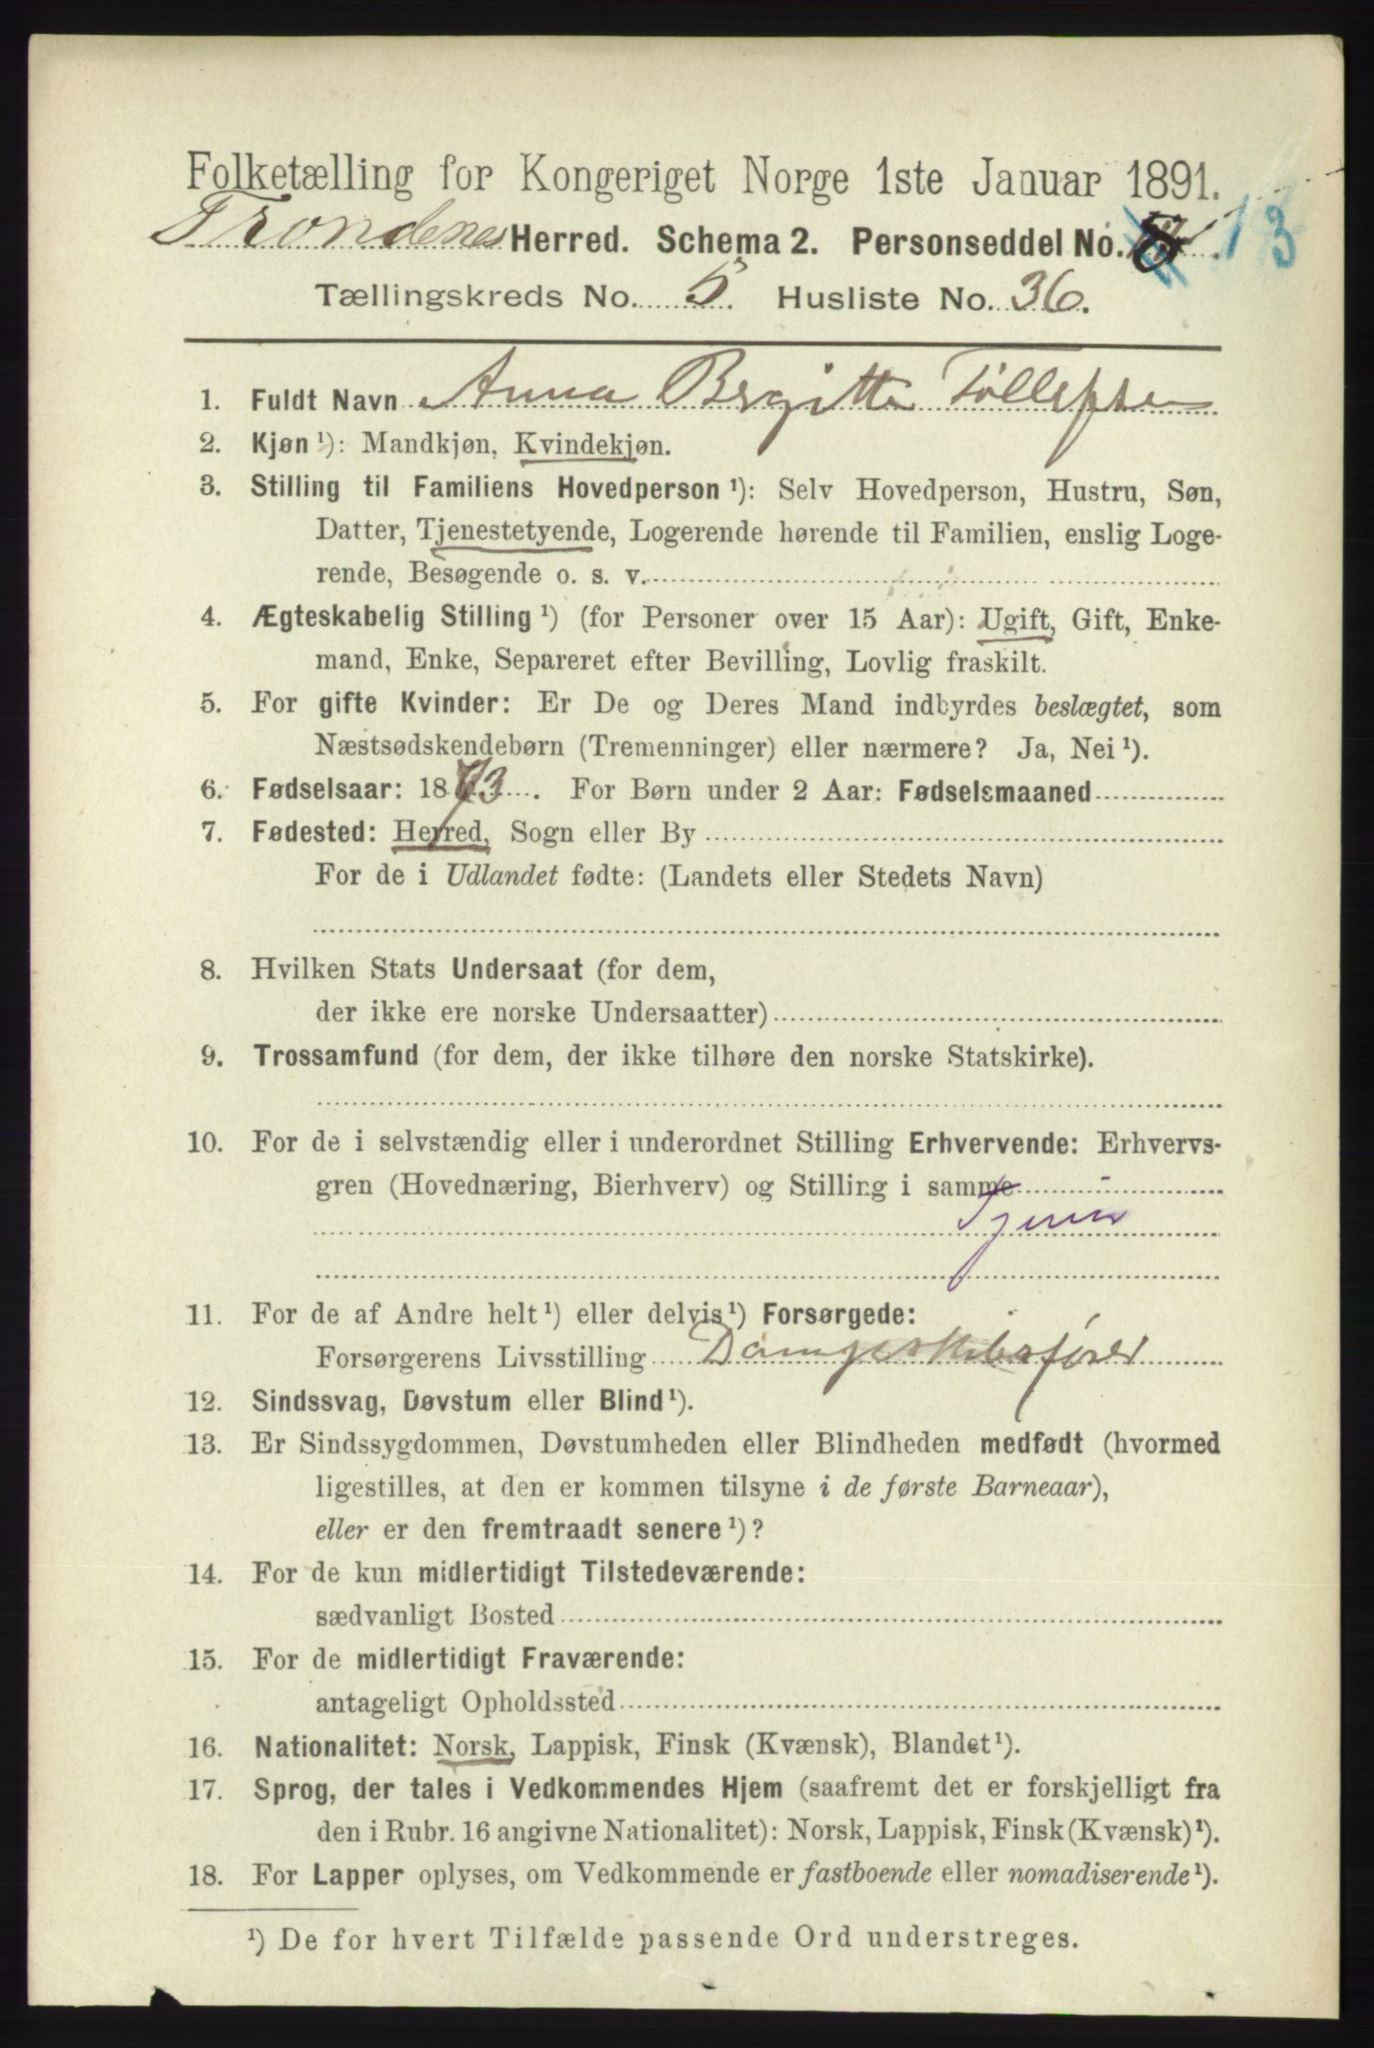 Folketælling for Kongeriget Norge 1ste Januar 1891.
Trondenes Herred. Schema 2. Personseddel No. 8. 13
Tællingskreds No. 5. Husliste No. 36.
1. Fuldt Navn Anna Bergitte Tøllefsen
2. Kjøn ¹): Mandkjøn, Kvindekjøn.
3. Stilling til Familiens Hovedperson ¹): Selv Hovedperson, Hustru, Søn,
Datter, Tjenestetyende, Logerende hørende til Familien, enslig Loge-
rende, Besøgende o. s. v.
4. Ægteskabelig Stilling ¹) (for Personer over 15 Aar): Ugift, Gift, Enke-
mand, Enke, Separeret efter Bevilling, Lovlig fraskilt.
5. For gifte Kvinder: Er De og Deres Mand indbyrdes beslægtet, som
Næstsødskendebørn (Tremenninger) eller nærmere? Ja, Nei ¹).
6. Fødselsaar: 1873. For Børn under 2 Aar: Fødselsmaaned
7. Fødested: Herred, Sogn eller By
For de i Udlandet fødte: (Landets eller Stedets Navn)
8. Hvilken Stats Undersaat (for dem,
der ikke ere norske Undersaatter)
9. Trossamfund (for dem, der ikke tilhøre den norske Statskirke).
10. For de i selvstændig eller i underordnet Stilling Erhvervende: Erhvervs-
gren (Hovednæring, Bierhverv) og Stilling i samme
11. For de af Andre helt ¹) eller delvis ¹) Forsørgede:
Forsørgerens Livsstilling Dampskibsfører
12. Sindssvag, Døvstum eller Blind ¹).
13. Er Sindssygdommen, Døvstumheden eller Blindheden medfødt (hvormed
ligestilles, at den er kommen tilsyne i de første Barneaar),
eller er den fremtraadt senere ¹)?
14. For de kun midlertidigt Tilstedeværende:
sædvanligt Bosted
15. For de midlertidigt Fraværende:
antageligt Opholdssted
16. Nationalitet: Norsk, Lappisk, Finsk (Kvænsk), Blandet ¹).
17. Sprog, der tales i Vedkommendes Hjem (saafremt det er forskjelligt fra
den i Rubr. 16 angivne Nationalitet): Norsk, Lappisk, Finsk (Kvænsk) ¹).
18. For Lapper oplyses, om Vedkommende er fastboende eller nomadiserende ¹).
¹) De for hvert Tilfælde passende Ord understreges.